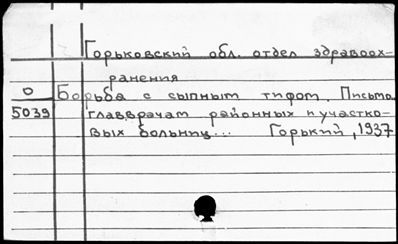 Горьковский обл. отдел здравоох-
ранения
О Борьба с сыпным тифом. Письмо
5039 главврачам районных и участко-
вых больниц... Горький, 1937